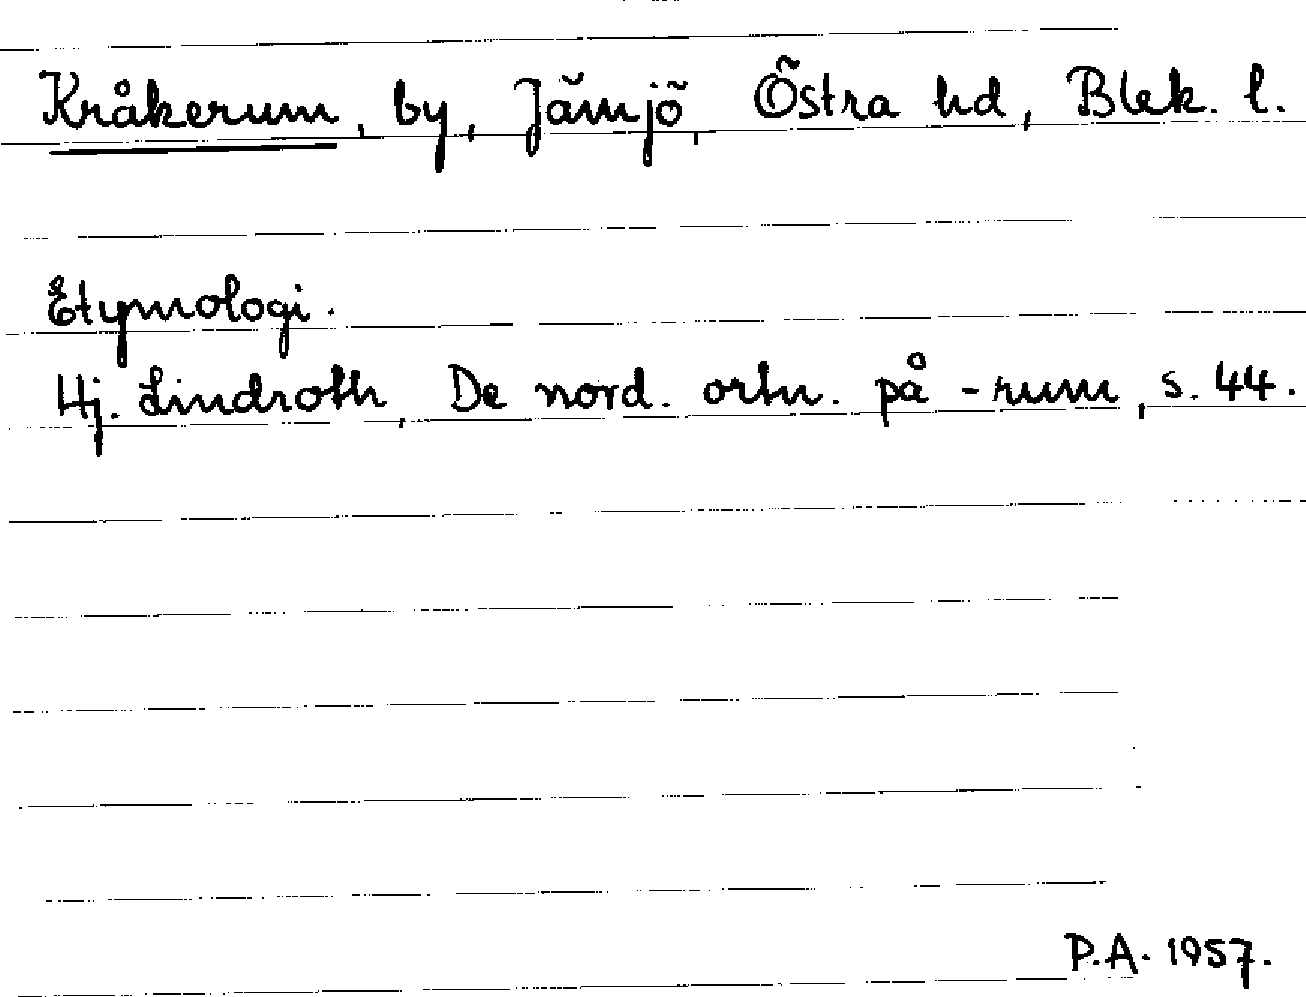 Kråkerum, by, Jämjö, Östra hd, Blek. l.
Etymologi.
Hj. Lindroth, De nord. ortn. på -rum, s. 44.
P.A. 1957.